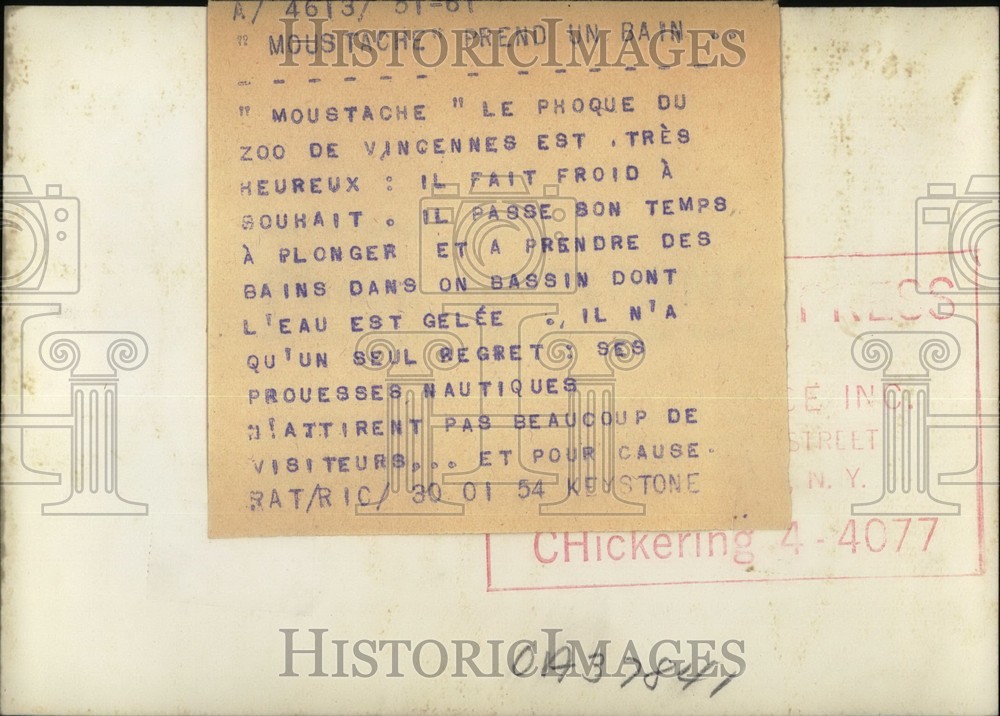 A/ 4613/ 51-61
" MOUSTACHE" PREND UN BAIN ..
- - - - - - - - - - - - -
" MOUSTACHE " LE PHOQUE DU
ZOO DE VINCENNES EST . TRÈS
HEUREUX : IL FAIT FROID À
SOUHAIT . IL PASSE SON TEMPS
À PLONGER ET A PRENDRE DES
BAINS DANS ON BASSIN DONT
L'EAU EST GELÉE ., IL N'A
QU'UN SEUL REGRET : SES
PROUESSES NAUTIQUES
N'ATTIRENT PAS BEAUCOUP DE
VISITEURS... ET POUR CAUSE.
RAT/RIC/ 30 01 54 KEYSTONE
PRESS
INC.
STREET
N. Y.
CHickering 4-4077
CA37847
HISTORIC IMAGES
HISTORIC IMAGES